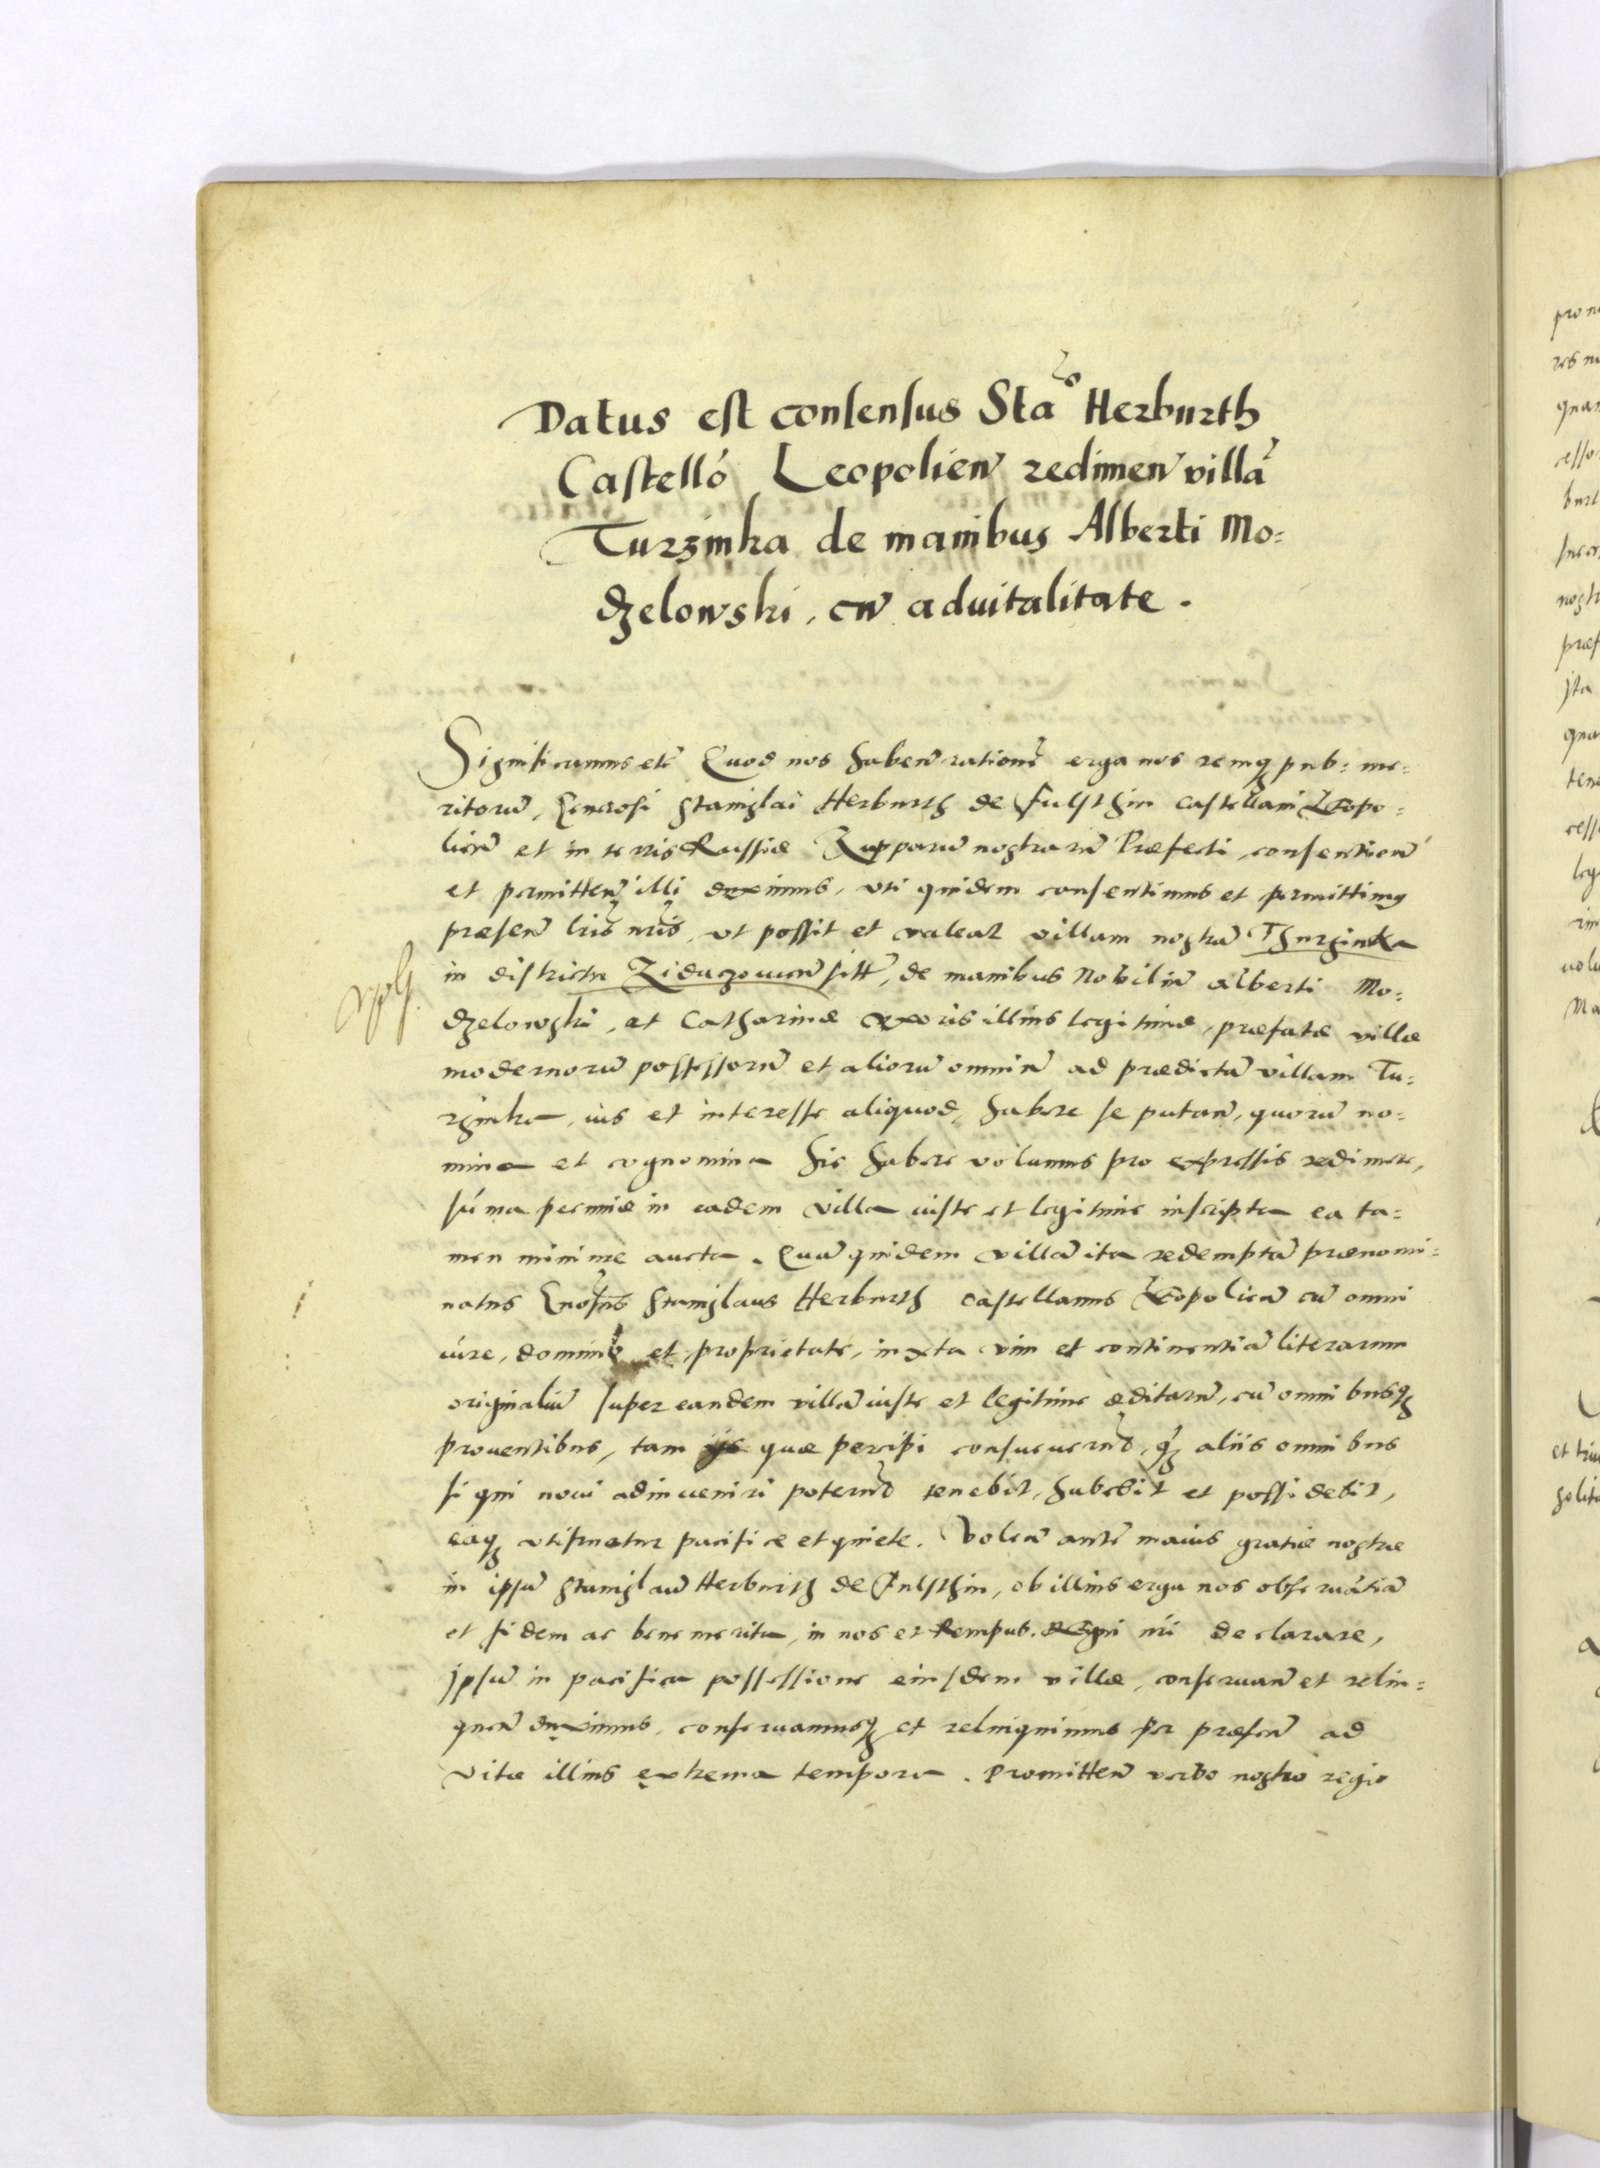 Datus est consensus Sta° Herburth
Castellō Leopolien̄ redimen̄ villā
Turzinka de manibus Alberti Mo:
dzelowski, cū advitalitate.
Significamus etc̄ Quod nos haben̄ rationē erga nos remq₃ pub: me:
ritorū, Generosi Stanislai Herburth de Fulsthin Castellani Leopo:
lien̄ et in terris Russiæ Zupparū nostrarū Præfecti, consentien̄
et permitten̄ illi duximus, uti quidem consentimus et permittimus
præsen̄ lris nris, ut possit et valeat villam nostrā Thurzinka
in districtu Zidaczovien̄ sitā, de manibus Nobiliū Alberti Mo:
dzelowski, et Catharinæ uxoris illius legitimæ, præfatæ villæ
modernorū possessorū et aliorū omniū ad prædictā villam Tu:
rzinka, ius et interesse aliquod, habere se putan̄, quorū no:
mina et cognomina hic habere volumus pro expressis redimere,
sūma pecuniæ in eadem villa iuste et legitime inscripta ea ta:
men minime aucta. Quā quidem villā ita redemptā prænomi:
natus Gnosus Stanislaus Herburth Castellanus Leopolien̄ cū omni
iure, dominio et proprietate, iuxta vim et continentiā literarum
originaliū super eandem villā iuste et legitime æditarū, cū omnibusq₃
proventibus, tam iis quæ percipi consueverūt, q̄₃ aliis omnibus
si qui novi adinveniri poterūt tenebit, habebit et possidebit,
eaq₃ utifruetur pacifice et quiete. Volen̄ autē maius gratiæ nostræ
in ipsū Stanislaū Herburth de Fulsthin, ob illius erga nos observātiā
et fidem ac bene merita, in nos et Rempub. Regni nri declarare,
ipsū in pacifica possessione eiusdem villæ, conservan̄ et relin:
quen̄ duximus, conservamusq₃ et relinquimus per præsen̄ ad
vitæ illius extrema tempora. Promitten̄ verbo nostro regio